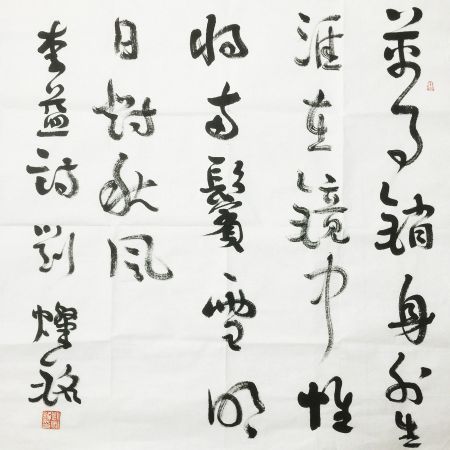 萬事銷身外生
涯在鏡中惟
将兩鬢雪明
日對秋风
李益詩 劉